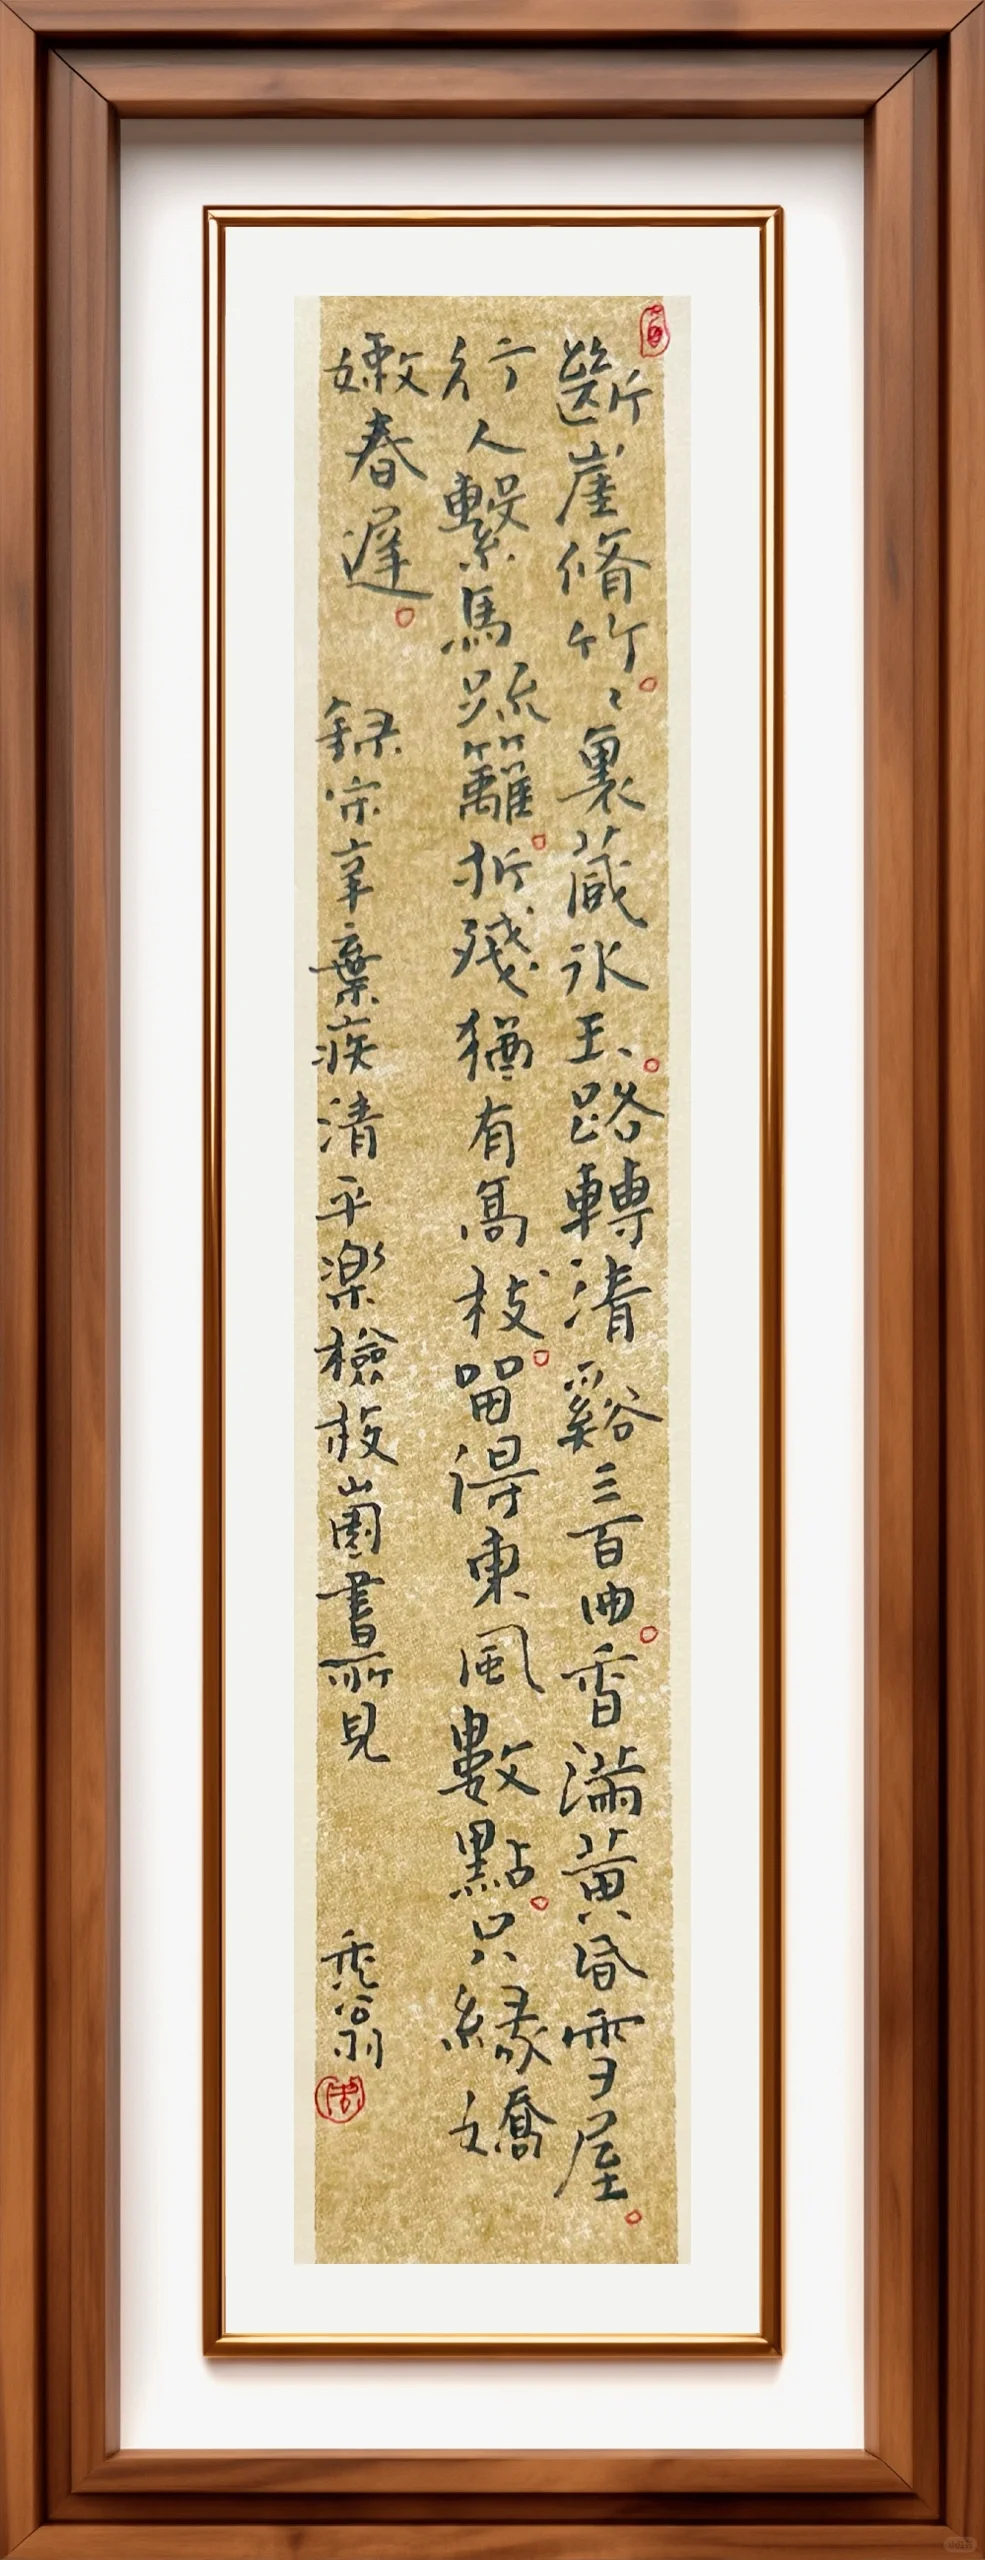 斷崖脩竹。〻裏藏冰玉。路轉清谿三百曲。香滿黃昏雪屋。
行人繫馬疏籬。折殘猶有高枝。留得東風數點。只緣嬌
嫩春遲。 録宋辛棄疾清平樂檢校山園書所見 翁